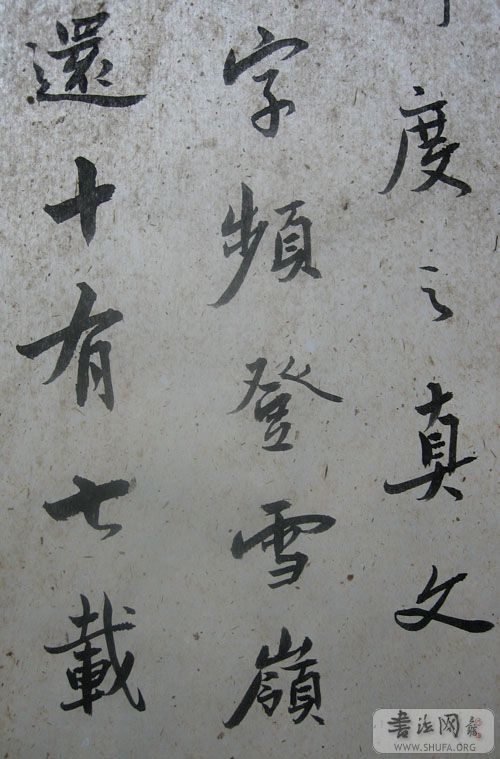 度之真文
字頻登雪嶺
還十有七載
书法网
WWW.SHUFA.ORG